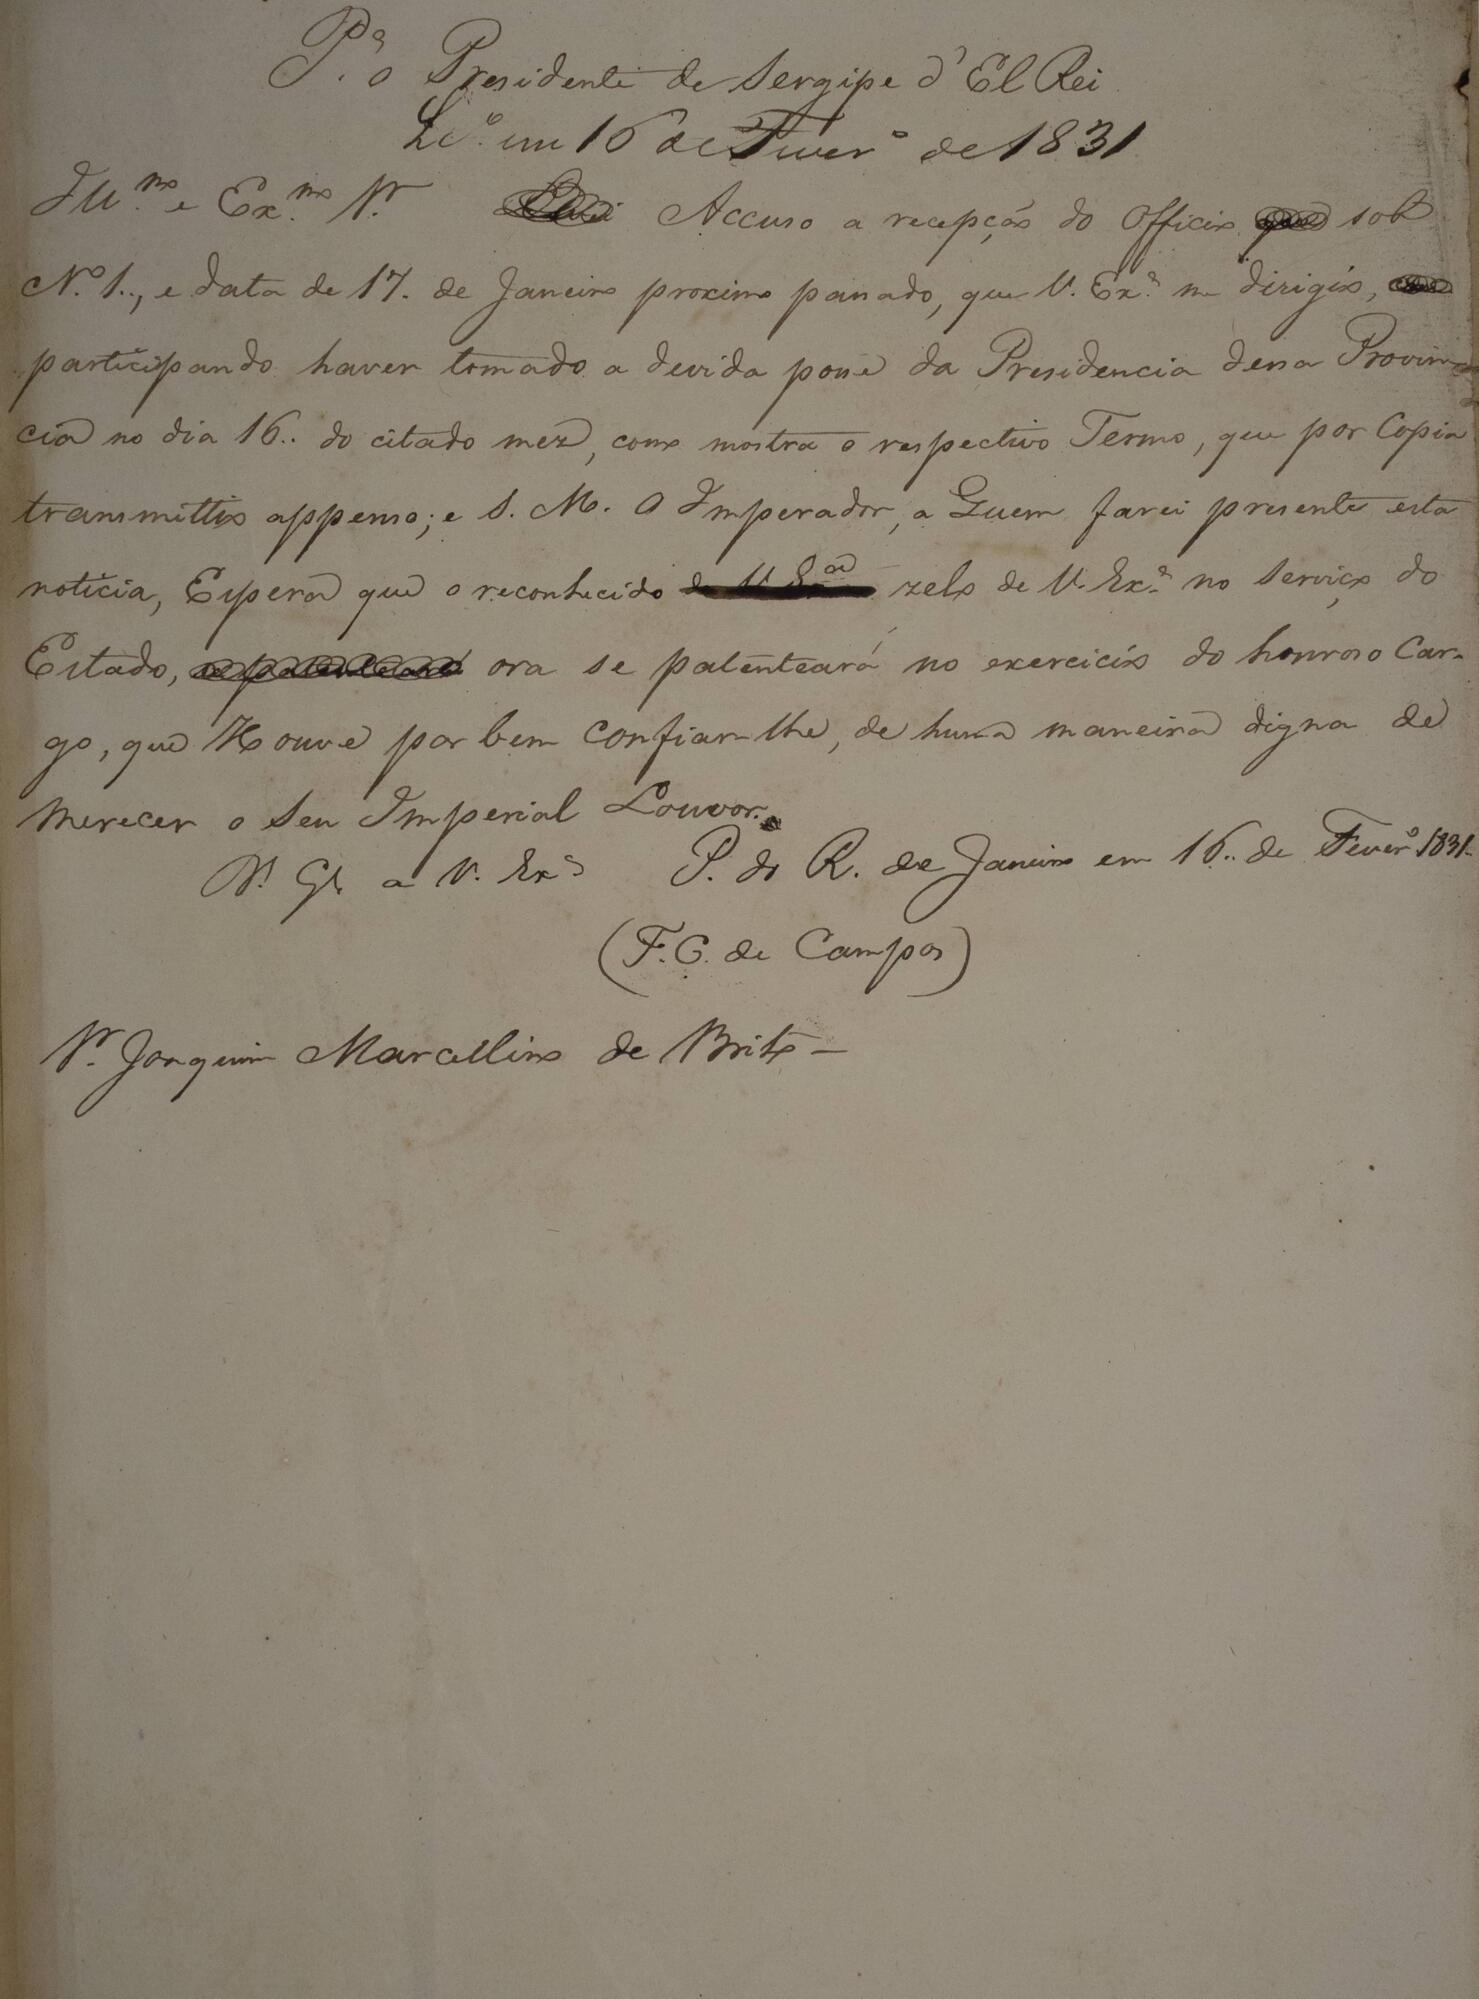 P.ª o Presidente de Sergipe d'El Rei
em 16 de Fever.º de 1831
Ill.mo e Ex.mo Sr. Accuso a recepção do Officio sob
N.º 1.., e data de 17. de Janeiro proximo passado, que V. Ex.ª me dirigio,
participando haver tomado a devida posse da Presidencia dessa Provin-
cia no dia 16.. do citado mez, como mostra o respectivo Termo, que por Copia
transmittio appenso; e S. M. O Imperador, a Quem farei presente esta
noticia, Espera que o reconhecido zelo de V. Ex.ª no Serviço do
Estado, ora se patenteará no exercicio do honroso Car-
go, que Houve por bem confiar-lhe, de huma maneira digna de
merecer o Seu Imperial Louvor.
D.s G.e a V. Ex.ª P. do R. de Janeiro em 16.. de Fever.º 1831.
(F. C. de Campos)
Sr. Joaquim Marcellino de Brito —